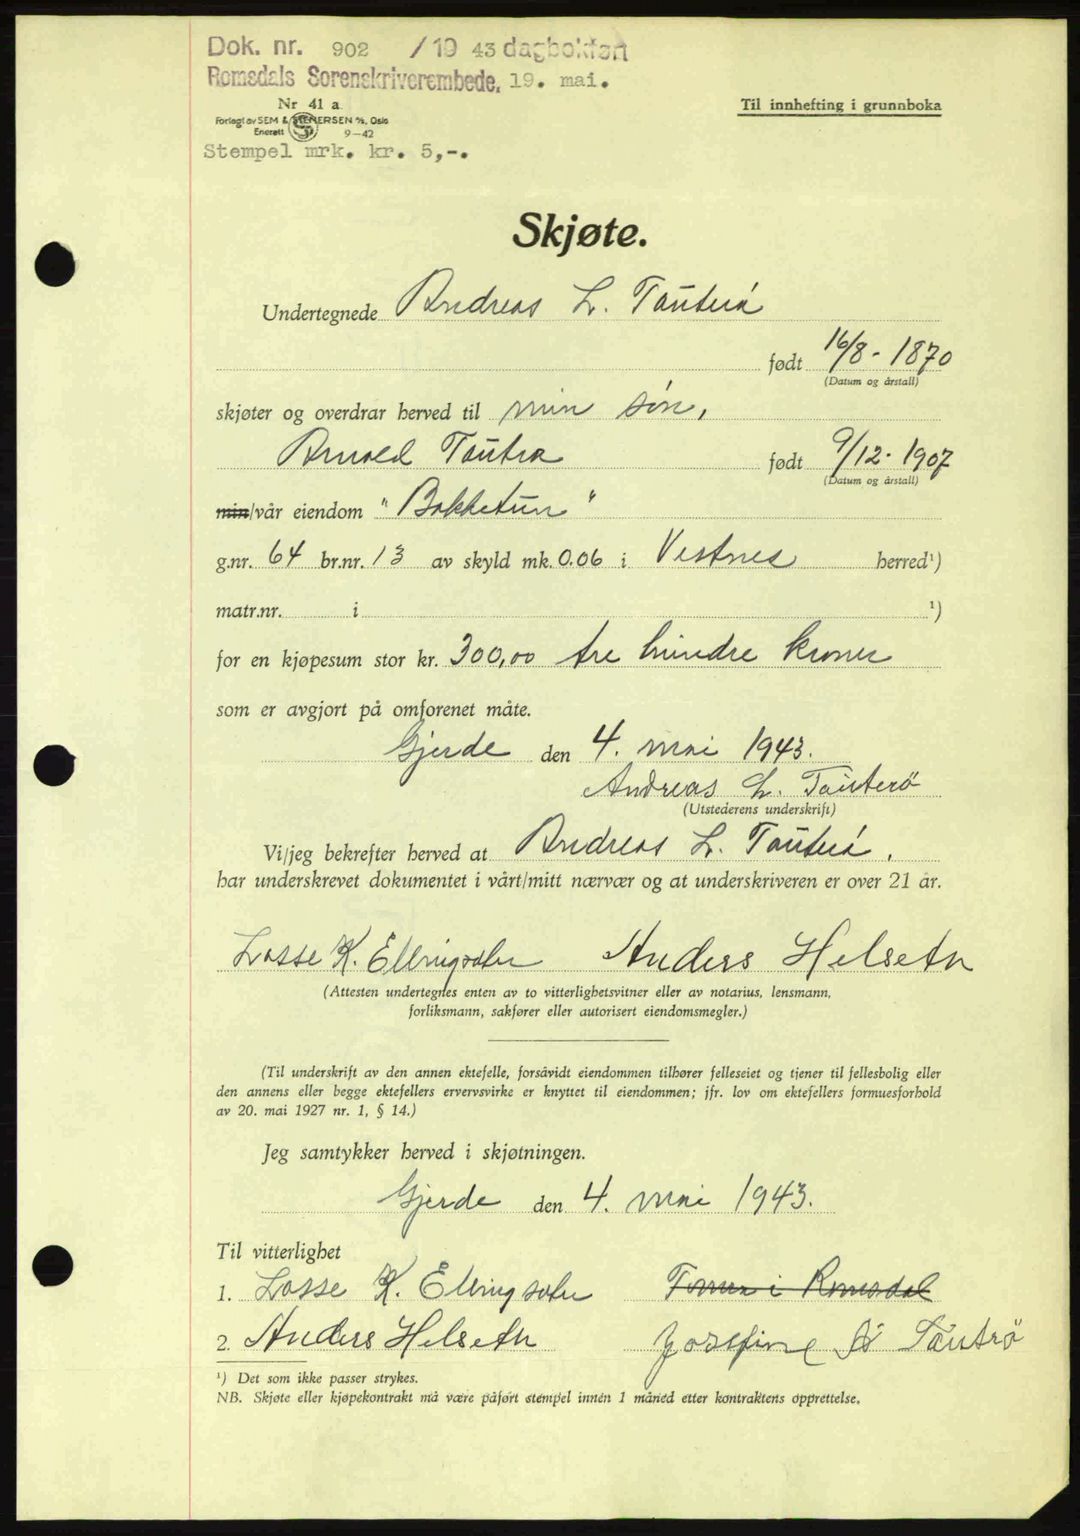 Dok. nr. 902 /19 43 dagbokført
Romsdals Sorenskriverembede, 19. mai.
Nr 41 a
Til innhefting i grunnboka
Forlagt av SEM & STENERSEN A/S, Oslo
Enerett 9-42
Stempel mrk. kr. 5,-.
Skjøte.
Undertegnede Andreas L. Tautrø
født 16/8 - 1870
(Datum og årstall)
skjøter og overdrar herved til min søn,
Arnold Tautra født 9/12 - 1907
(Datum og årstall)
min/vår eiendom "Bakketun"
g.nr. 64 br.nr. 13 av skyld mk. 0.06 i Vestnes herred¹)
matr.nr. i ¹)
for en kjøpesum stor kr. 300,00 tre hundre kroner
som er avgjort på omforenet måte.
Gjerde den 4. mai 1943.
Andreas L. Tautrø
(Utstederens underskrift)
Vi/jeg bekrefter herved at Andreas L. Tautrø.
har underskrevet dokumentet i vårt/mitt nærvær og at underskriveren er over 21 år.
Lasse K. Ellingsæter Anders Helseth
(Attesten undertegnes enten av to vitterlighetsvitner eller av notarius, lensmann,
forliksmann, sakfører eller autorisert eiendomsmegler.)
(Til underskrift av den annen ektefelle, forsåvidt eiendommen tilhører felleseiet og tjener til fellesbolig eller
den annens eller begge ektefellers ervervsvirke er knyttet til eiendommen; jfr. lov om ektefellers formuesforhold
av 20. mai 1927 nr. 1, § 14.)
Jeg samtykker herved i skjøtningen.
Gjerde den 4. mai 1943.
Til vitterlighet
1. Lasse K. Ellingsæter i Romsdal
2. Anders Helseth Josefine Tautrø
¹) Det som ikke passer strykes.
NB. Skjøte eller kjøpekontrakt må være påført stempel innen 1 måned etter kontraktens opprettelse.